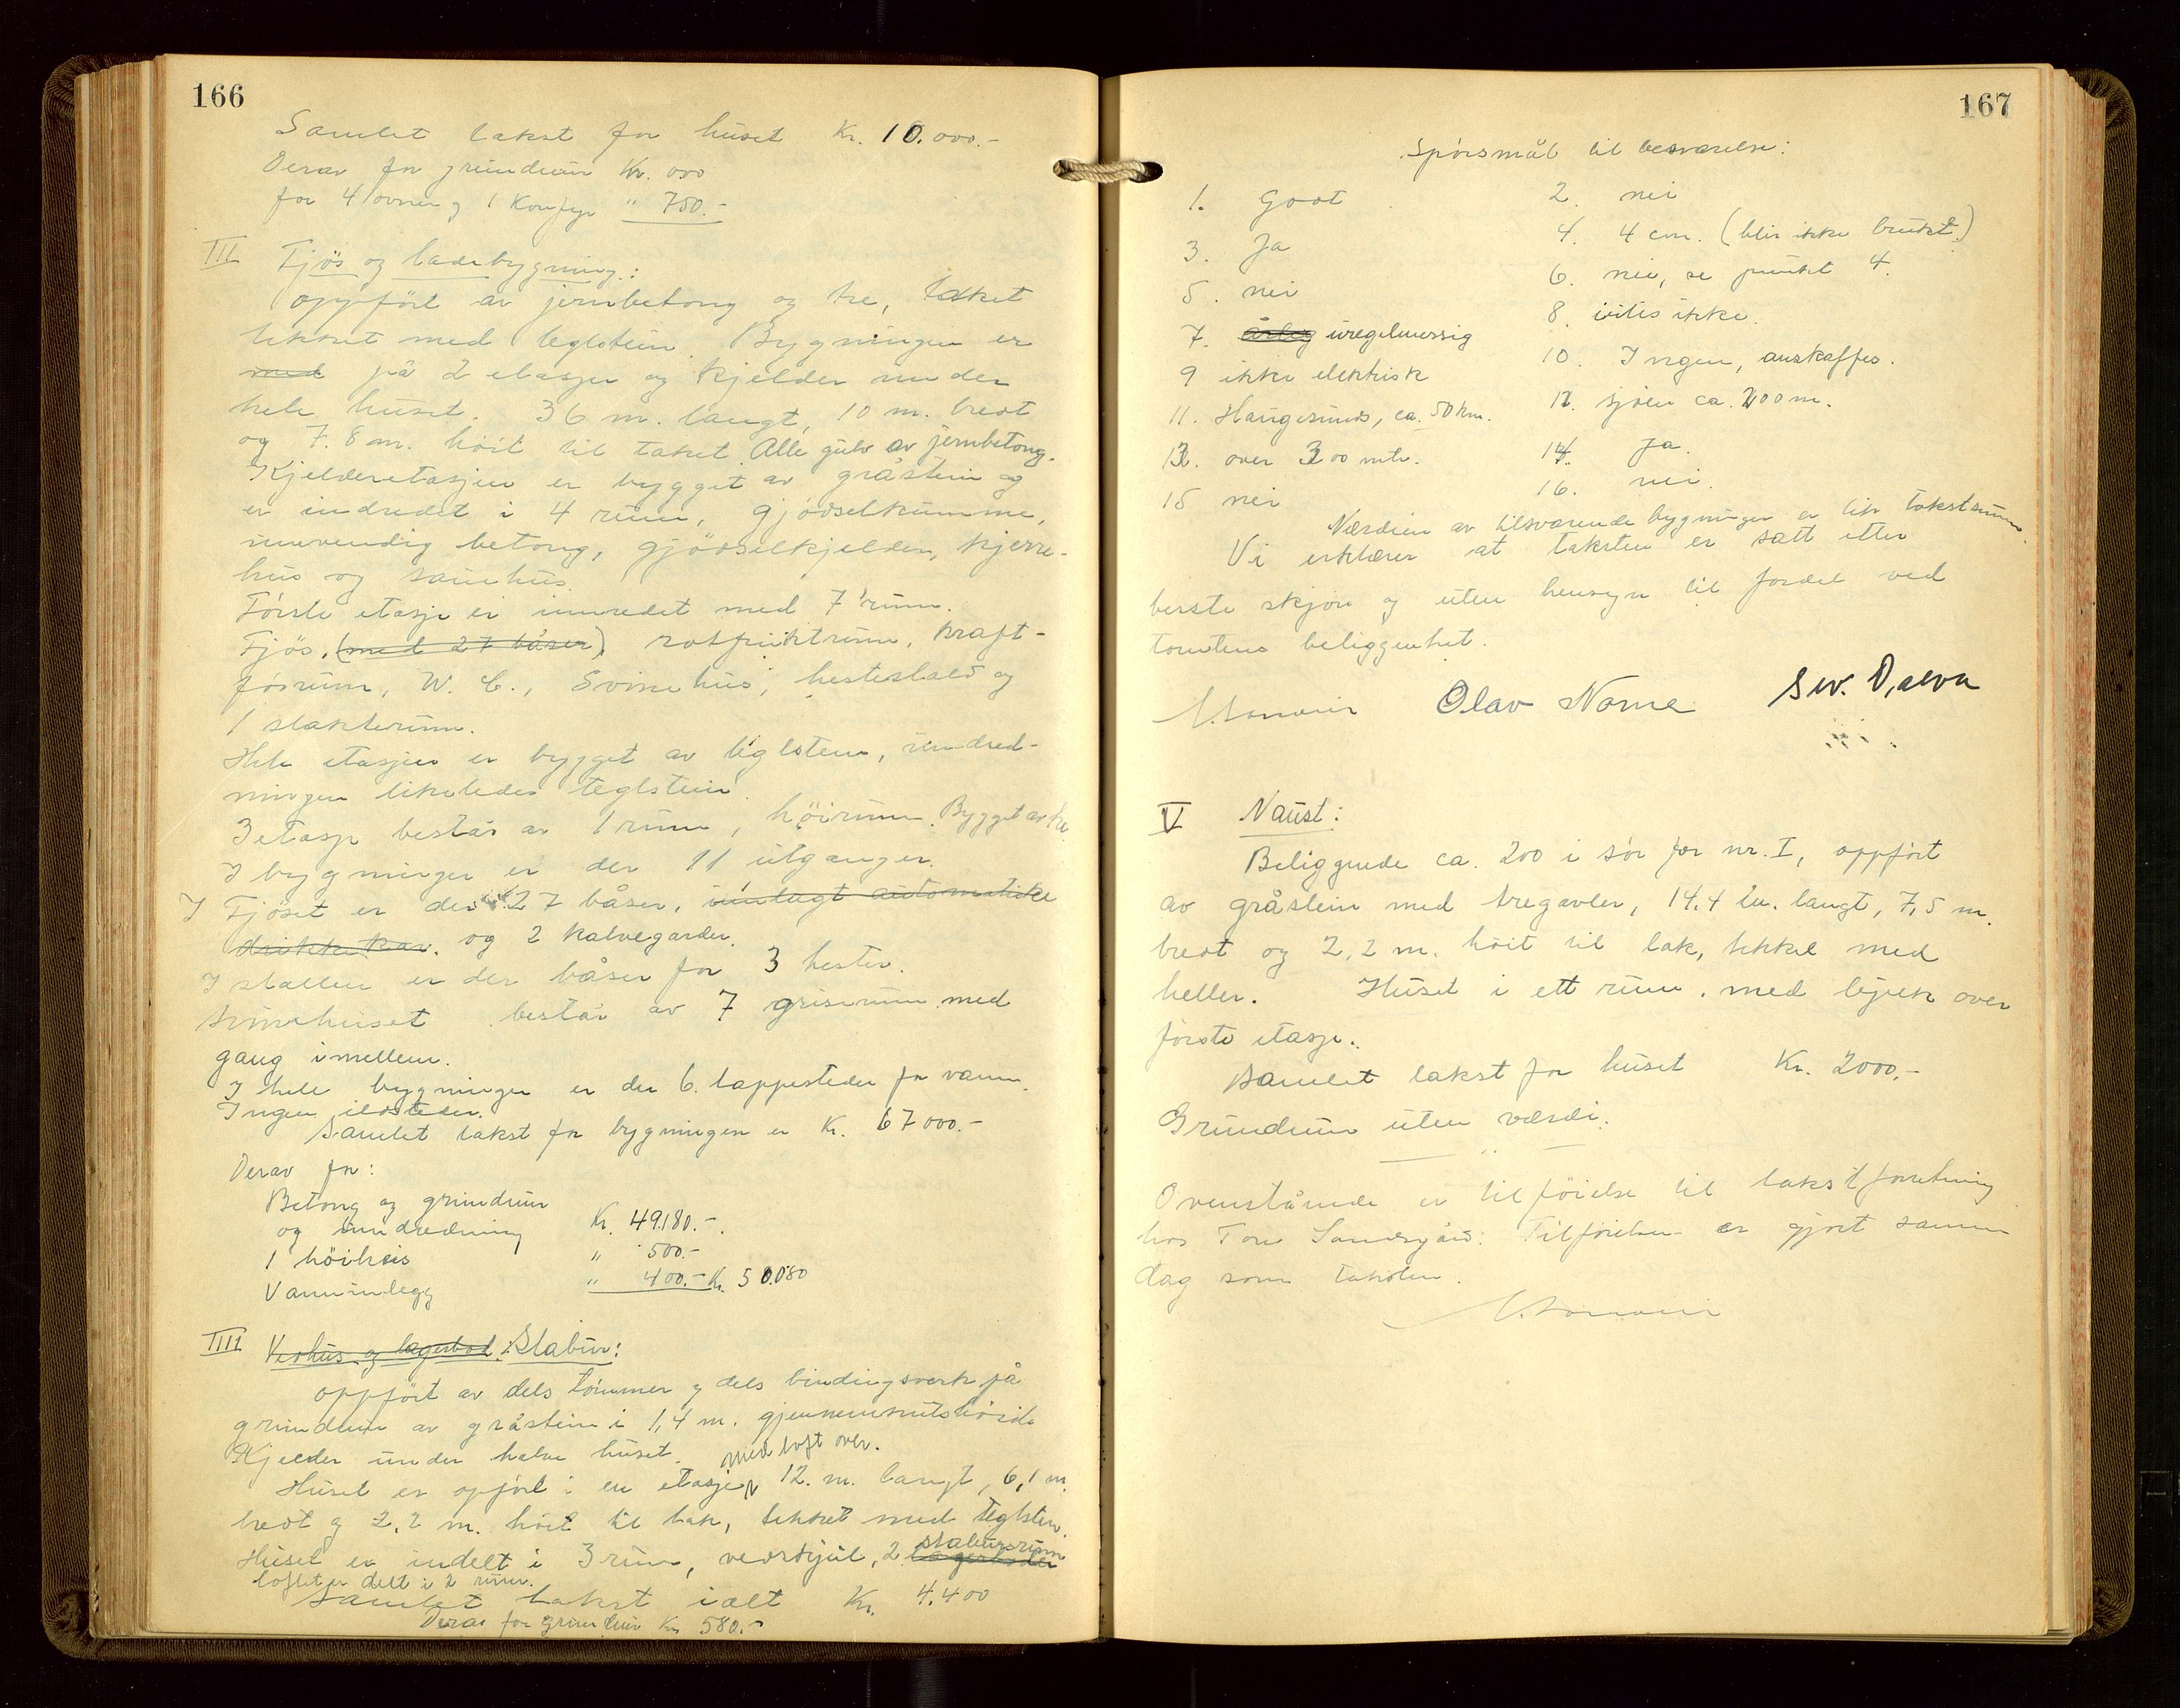 166
Samlet takst for huset Kr. 10.000.-
Derav for grundmur Kr. 000
for 4 ovner og 1 Komfyr " 750.-
III Fjös og ladebygning:
oppfört av jernbetong og tre, taket
tekket med teglstein. Bygningen er
med på 2 etasjer og kjelder under
hele huset. 36 m. langt, 10 m. bredt
og 7.8 m. höit til taket. Alle gulv av jernbetong.
Kjelderetasjen er bygget av gråstein og
er indredet i 4 rum, gjödselkumme,
innvendig betong, gjödselkjelder, kjerre-
hus og sauehus.
Förste etasje er innredet med 7 rum.
Fjös, (med 27 båser), rotfruktrum, kraft-
forrum, W. C., Svinehus, hestestald og
1 slakterum.
Hele etasjen er bygget av teglstein, inndred-
ningen likeledes teglstein.
3 etasje består av 1 rum, höirum. Bygget av tre
I bygningen er der 11 utganger.
I Fjöset er der 27 båser, innlagt automatiske
drikkekar. og 2 kalvegarder.
I stallen er der båser for 3 hester.
Svinehuset består av 7 griserum med
gang imellem.
I hele bygningen er der 6 tappesteder for vann.
Ingen ildsteder.
Samlet takst for bygningen er Kr. 67000.-
Derav for:
Betong og grundmur
og inndredning Kr. 49180.-
1 höiheis " 500.-
Vanninlegg " 400.- Kr. 50.080
IIII Vedhus og lagerbod: Stabur:
oppfört av dels tömmer og dels bindingsverk på
grundmur av gråstein i 1,4 m. gjennemsnitshöide
Kjelder under halve huset.
med loft over.
Huset er opfört i en etasje, 12. m. langt, 6,1 m.
bredt og 2,2 m. höit til tak, tekket med teglsten.
stabursrum
Huset er indelt i 3 rum, vedskjul, 2 lagerboder
loftet er delt i 2 rum.
Samlet takst ialt Kr. 4.400
Derav for grundmur Kr. 580.-
167
Spörsmål til besvarelse:
1. Godt
2. nei
3. Ja
4. 4 cm. (blir ikke brukt.)
5. nei
6. nei, se punkt 4.
7. årlig uregelmessig
8. vites ikke.
9 ikke elektrisk
10. Ingen, anskaffes.
11. Haugesund, ca. 50 km.
12. sjöen ca. 200 m.
13. over 300 mtr.
14. Ja.
15 nei
16. nei.
Værdien av tilsvarende bygninger er lik takstsum.
Vi erklærer at taksten er satt etter
beste skjön og uten hensyn til fordel ved
tomtens beliggenhet.
Olav Norne Sev.
V Naust:
Beliggende ca. 200 i sör for nr. I, oppfört
av gråstein med tregavler, 14.4 m. langt, 7,5 m.
bredt og 2,2 m. höit til tak, tekket med
heller. Huset i ett rum, med lejem over
förste etasje.
Samlet takst for huset Kr. 2000,-
Grundmur uten værdi.
Ovenstående er tilföielse til takstforretning
hos Tore Sandsgård. Tilföielsen er gjort samme
dag som taksten.